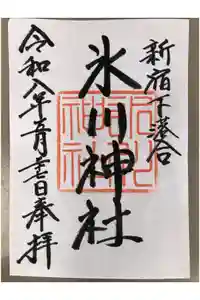 新宿下落合
氷川神社
令和八年月日奉拝